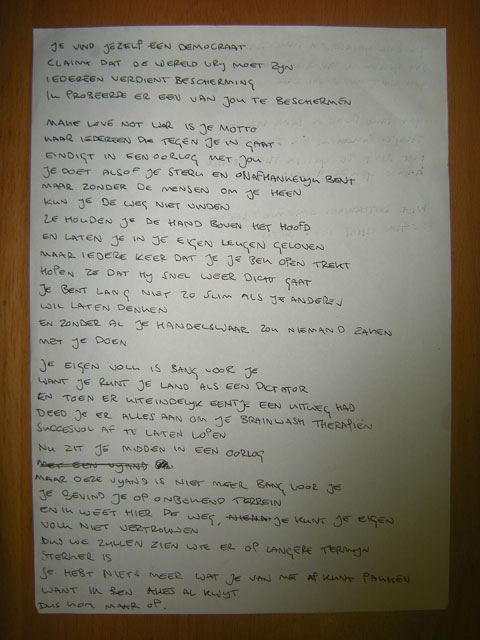 JE VIND JEZELF EEN DEMOCRAAT
CLAIMT DAT DE WERELD VRIJ MOET ZIJN
IEDEREEN VERDIENT BESCHERMING
IK PROBEERDE ER EEN VAN JOU TE BESCHERMEN
MAKE LOVE NOT WAR IS JE MOTTO
MAAR IEDEREEN DIE TEGEN JE IN GAAT
EINDIGT IN EEN OORLOG MET JOU
JE DOET ALSOF JE STERK EN ONAFHANKELIJK BENT
MAAR ZONDER DE MENSEN OM JE HEEN
KUN JE DE WEG NIET VINDEN
ZE HOUDEN JE DE HAND BOVEN HET HOOFD
EN LATEN JE IN JE EIGEN LEUGEN GELOVEN
MAAR IEDERE KEER DAT JE JE BEK OPEN TREKT
HOPEN ZE DAT HIJ SNEL WEER DICHT GAAT
JE BENT LANG NIET ZO SLIM ALS JE ANDEREN
WIL LATEN DENKEN
EN ZONDER AL JE HANDELSWAAR ZOU NIEMAND ZAKEN
MET JE DOEN
JE EIGEN VOLK IS BANG VOOR JE
WANT JE RUNT JE LAND ALS EEN DICTATOR
EN TOEN ER UITEINDELIJK EENTJE EEN UITWEG HAD
DEED JE ER ALLES AAN OM JE BRAINWASH THERAPIEËN
SUCCESVOL AF TE LATEN LOPEN
NU ZIT JE MIDDEN IN EEN OORLOG
MET EEN VIJAND
MAAR DEZE VIJAND IS NIET MEER BANG VOOR JE
JE BEVIND JE OP ONBEKEND TERREIN
EN IK WEET HIER DE WEG, JE KUNT JE EIGEN
VOLK NIET VERTROUWEN
DUS WE ZULLEN ZIEN WIE ER OP LANGERE TERMIJN
STERKER IS
JE HEBT NIETS MEER WAT JE VAN ME AF KUNT PAKKEN
WANT IK BEN ALLES AL KWIJT
DUS KOM MAAR OP.